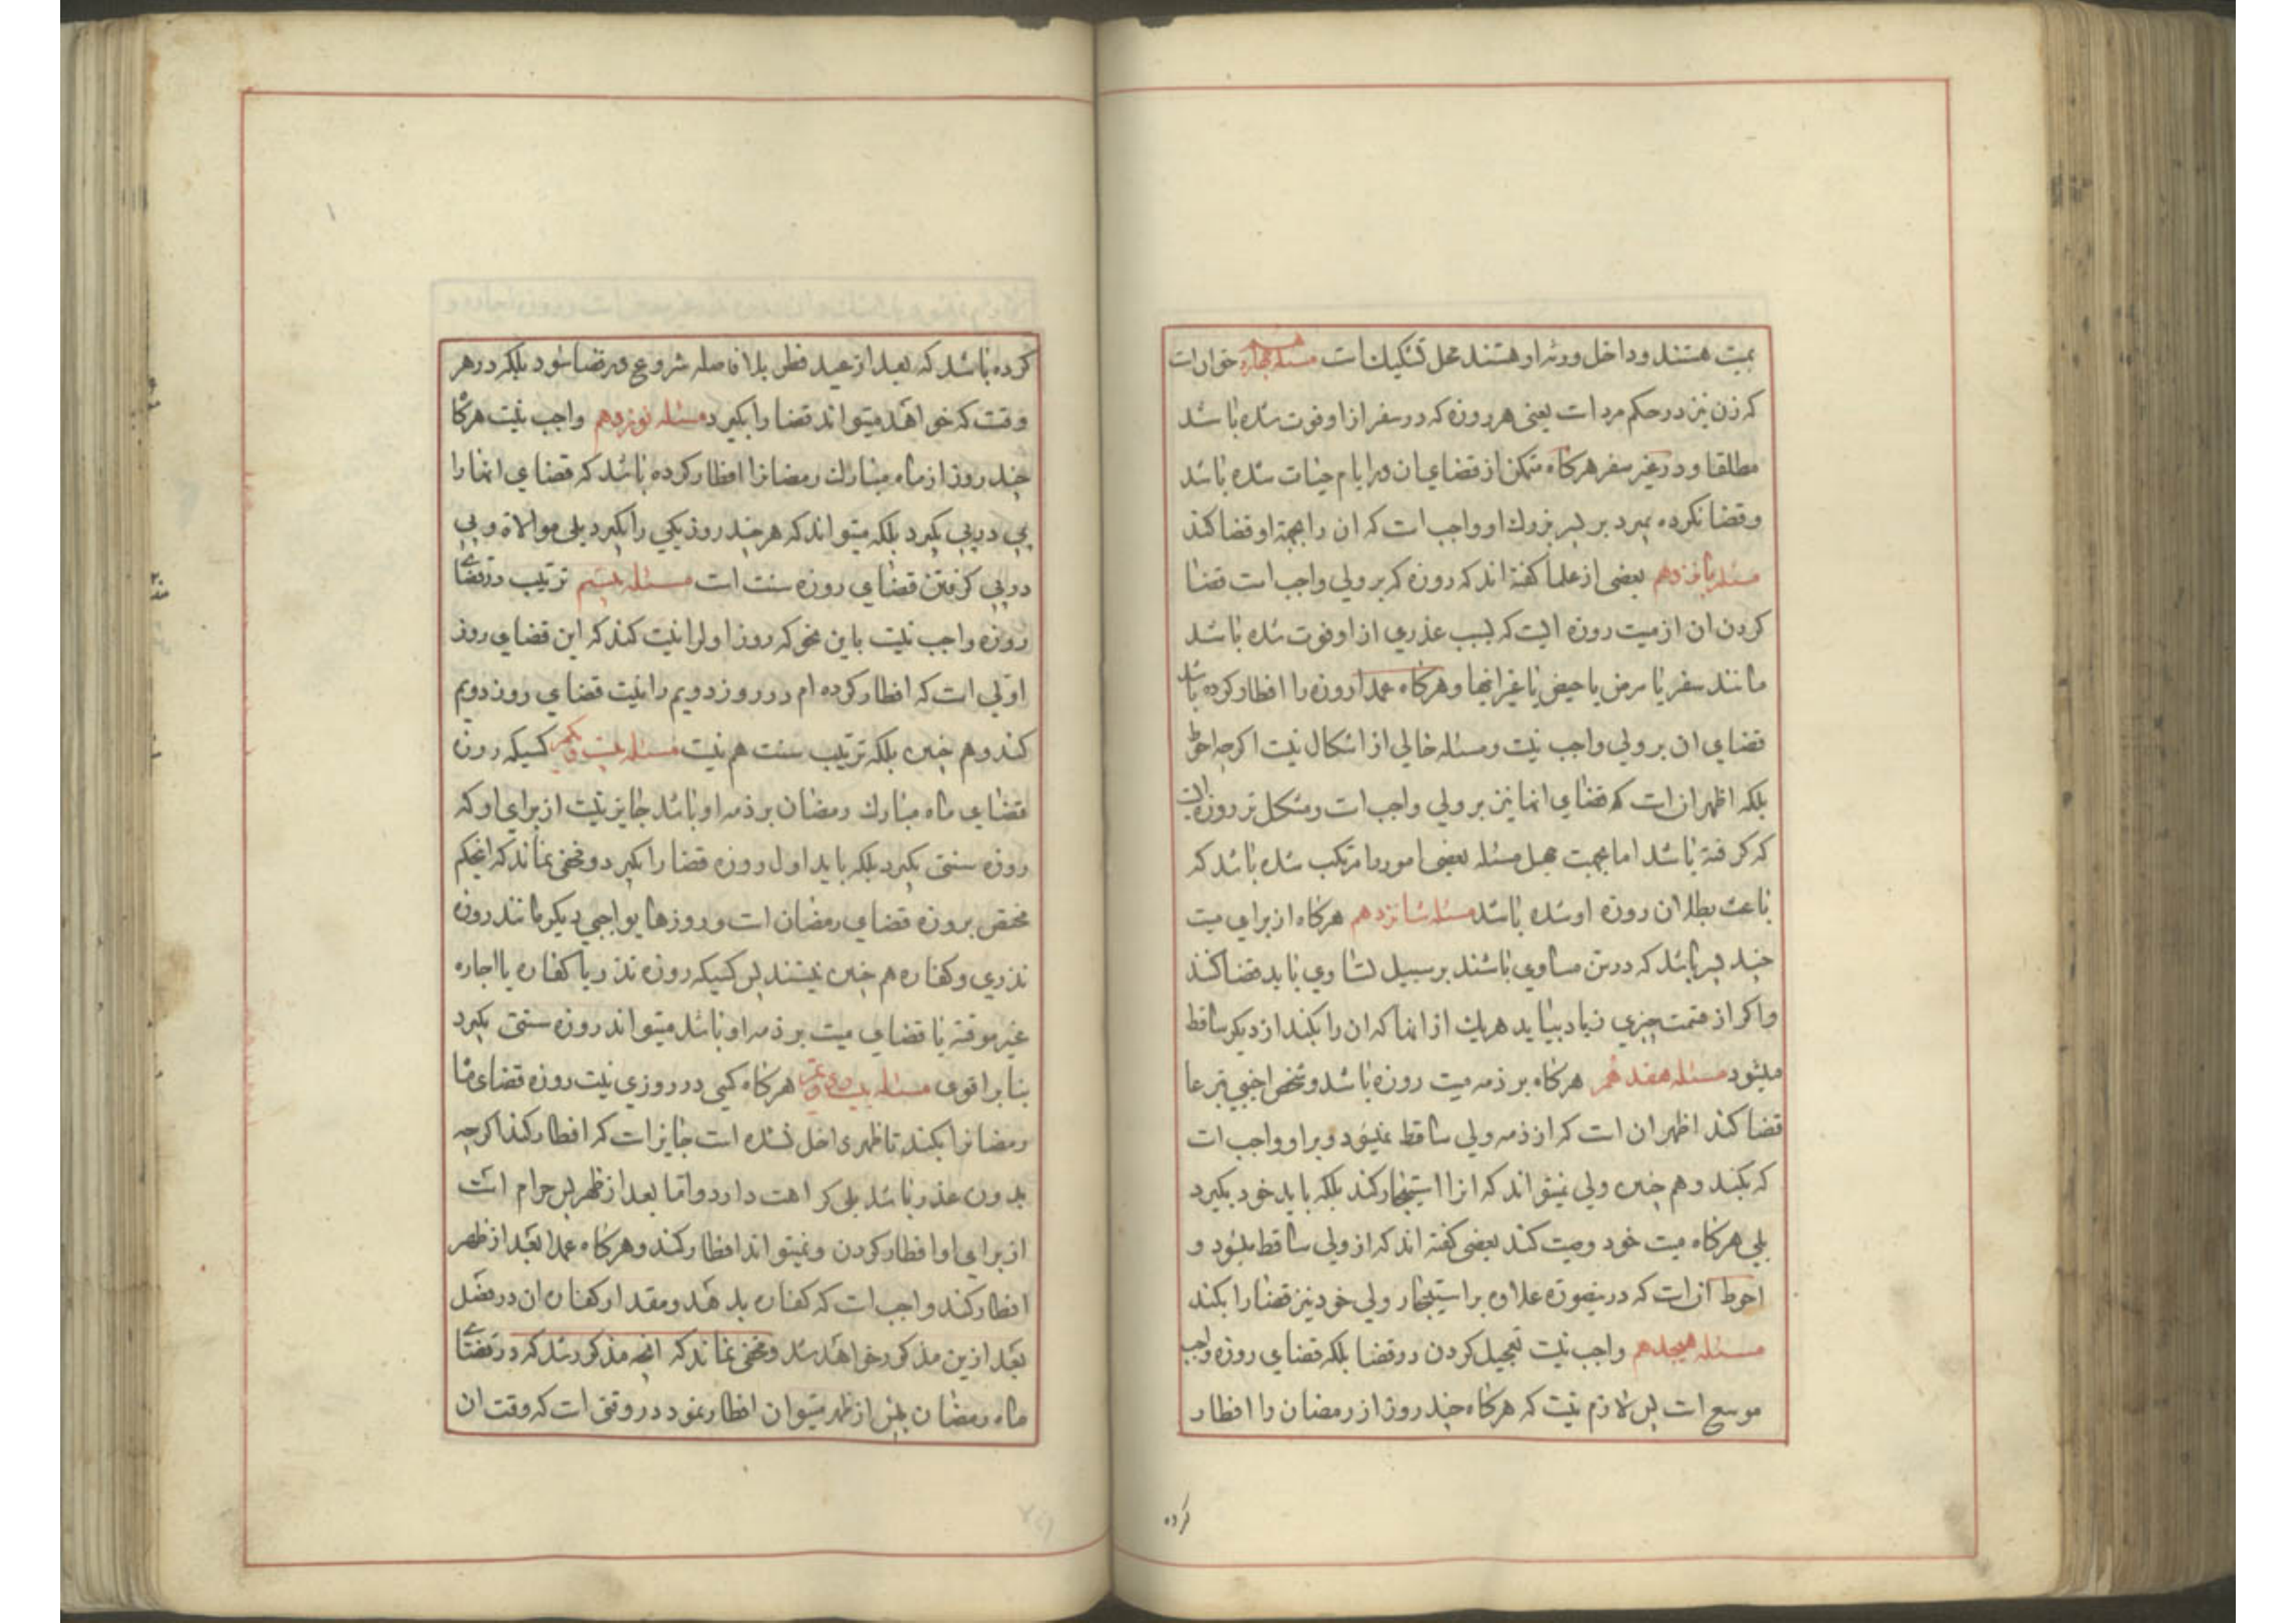 بمیت هستند و داخل ورثه او هستند محل تشکیک است مسئله چهاردهم
که زن نیز در حکم مرد است یعنی هر روزه که در سفر از او فوت شده باشد
مطلقا و در غیر سفر هرکاه متمکن از قضای ان در ایام حیات شده باشد
و قضا نکرده بمیرد بر پسر بزرك او واجب است که ان را بجهة او قضا کند
مسئله پانزدهم بعضی از علما کفته اند که روزه که بر ولی واجب است قضا
کردن ان از میت روزه ایست که بسبب عذری از او فوت شده باشد
مانند سفر یا مرض یا حیض یا غیر اینها و هرکاه عمدا روزه را افطار کرده باشد
قضای ان بر ولی واجب نیست و مسئله خالی از اشکال نیست اکرچه احوط
بلکه اظهر ان است که قضای انها نیز بر ولی واجب است و مشکل تر روزه ایست
که کرفته باشد اما بجهت جهل مسئله بعضی امور را مرتکب شده باشد که
باعث بطلان روزه او شده باشد مسئله شانزدهم هرکاه از برای میت
چند پسر باشد که در سن مساوی باشند بر سبیل تساوی باید قضا کنند
و اکر از قسمت چیزی زیاد بیاید هریك از انها که ان را بکند از دیکر ساقط
میشود مسئله هفدهم هرکاه بر ذمه میت روزه باشد و شخص اجنبی تبرعا
قضا کند اظهر ان است که از ذمه ولی ساقط نمیشود و بر او واجب است
که بکند و هم چنین ولی نمیتواند که انرا استیجار کند بلکه باید خود بکیرد
بلی هرکاه میت خود وصیت کند بعضی کفته اند که از ولی ساقط میشود و
احوط ان است که در ینصورة علاوه بر استیجار ولی خود نیز قضا را بکند
مسئله هیجدهم واجب نیست تعجیل کردن در قضا بلکه قضای روزه واجب
موسع است پس لازم نیست که هرکاه چند روز از رمضان را افطار
کرده
کرده باشد که بعد از عید فطر بلا فاصله شروع در قضا شود بلکه در هر
وقت که خواهد میتواند قضا را بکیرد مسئله نوزدهم واجب نیست هرکاه
چند روز از ماه مبارك رمضانرا افطار کرده باشد که قضای انها را
پی در پی بکیرد بلکه میتواند که هر چند روز یکی را بکیرد بلی موالاة و پی
در پی کرفتن قضای روزه سنت است مسئله بیستم ترتیب در قضای
روزه واجب نیست باین نحو که روز اول را نیت کند که این قضای روز
اولی است که افطار کرده ام و در روز دویم را نیت قضای روز دویم
کند و هم چنین بلکه ترتیب سنت هم نیست مسئله بیست و یکم کسیکه روزه
قضای ماه مبارك رمضان بر ذمه او باشد جایز نیست از برای او که
روزه سنتی بکیرد بلکه باید اول روزه قضا را بکیرد و مخفی نماند که اینحکم
مختص بروزه قضای رمضان است و روزهای واجبی دیکر مانند روزه
نذری و کفاره هم چنین نیستند پس کسیکه روزه نذر و یا کفاره یا اجاره
غیر موقته یا قضای میت بر ذمه او باشد میتواند روزه سنتی بکیرد
بنا بر اقوی مسئله بیست و دویم هرکاه کسی در روزی نیت روزه قضای ماه
رمضانرا بکند تا ظهر داخل نشده است جایز است که افطار کند اکرچه
بدون عذر باشد بلی کراهت دارد و اما بعد از ظهر پس حرام است
از برای او افطار کردن و نمیتواند افطار کند و هرکاه عمدا بعد از ظهر
افطار کند واجب است که کفاره بدهد و مقدار کفاره ان در فصل
بعد ازین مذکور خواهد شد و مخفی نماند که انچه مذکور شد که در قضای
ماه رمضان پیش از ظهر میتوان افطار نمود در وقتی است که وقت ان